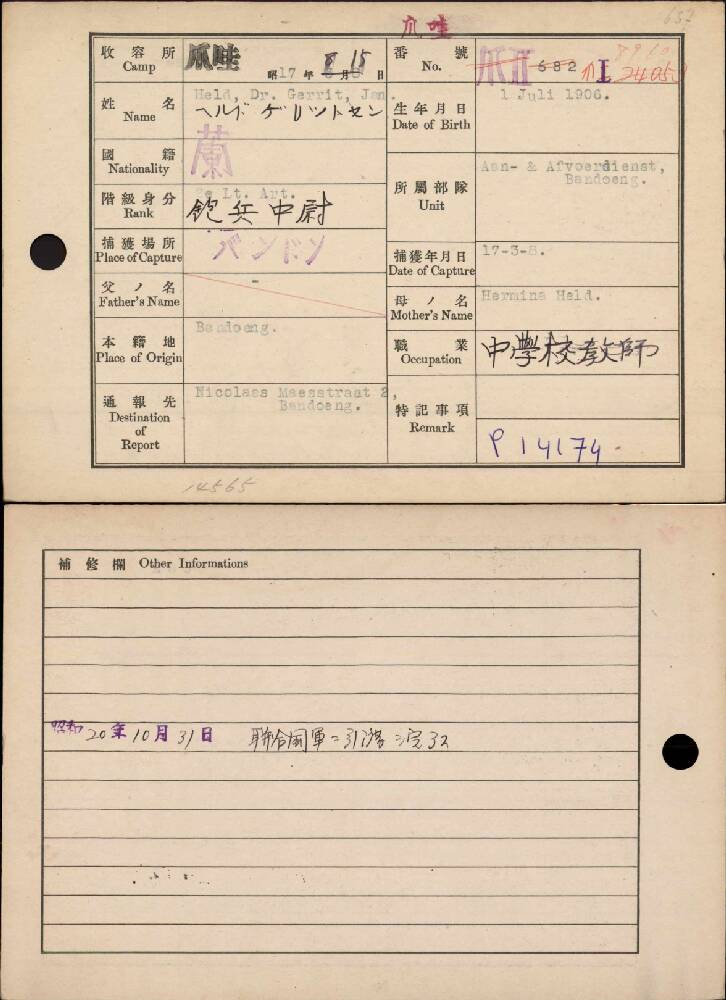 爪哇
652
收容所
Camp
爪哇
昭17年 8月15日
番號
No.
爪II 682
I
8910
24059
姓名
Name
Held, Dr. Gerrit, Jan.
ヘルド ゲリットセン
生年月日
Date of Birth
1 Juli 1906.
國籍
Nationality
蘭
階級身分
Rank
2e Lt. Art.
砲兵中尉
所屬部隊
Unit
Aan- & Afvoerdienst,
Bandoeng.
捕獲場所
Place of Capture
バンドン
捕獲年月日
Date of Capture
17-3-8.
父ノ名
Father's Name
-
母ノ名
Mother's Name
Hermina Held.
本籍地
Place of Origin
Bandoeng.
職業
Occupation
中學校教師
通報先
Destination
of
Report
Nicolaas Maesstraat 2,
Bandoeng.
特記事項
Remark
P 14174.
14565
補修欄 Other Informations
昭和20年10月31日 聯合國軍ニ引渡